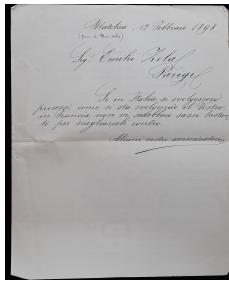 Matelica, 12 Febbraio 1898
Sig. Emilio Zola
Parigi
Se in Italia si svolgessero
processi come si sta svolgendo il vostro
in Francia non vi sarebbero sassi
per scagliarli contro
Alcuni vostri ammiratori